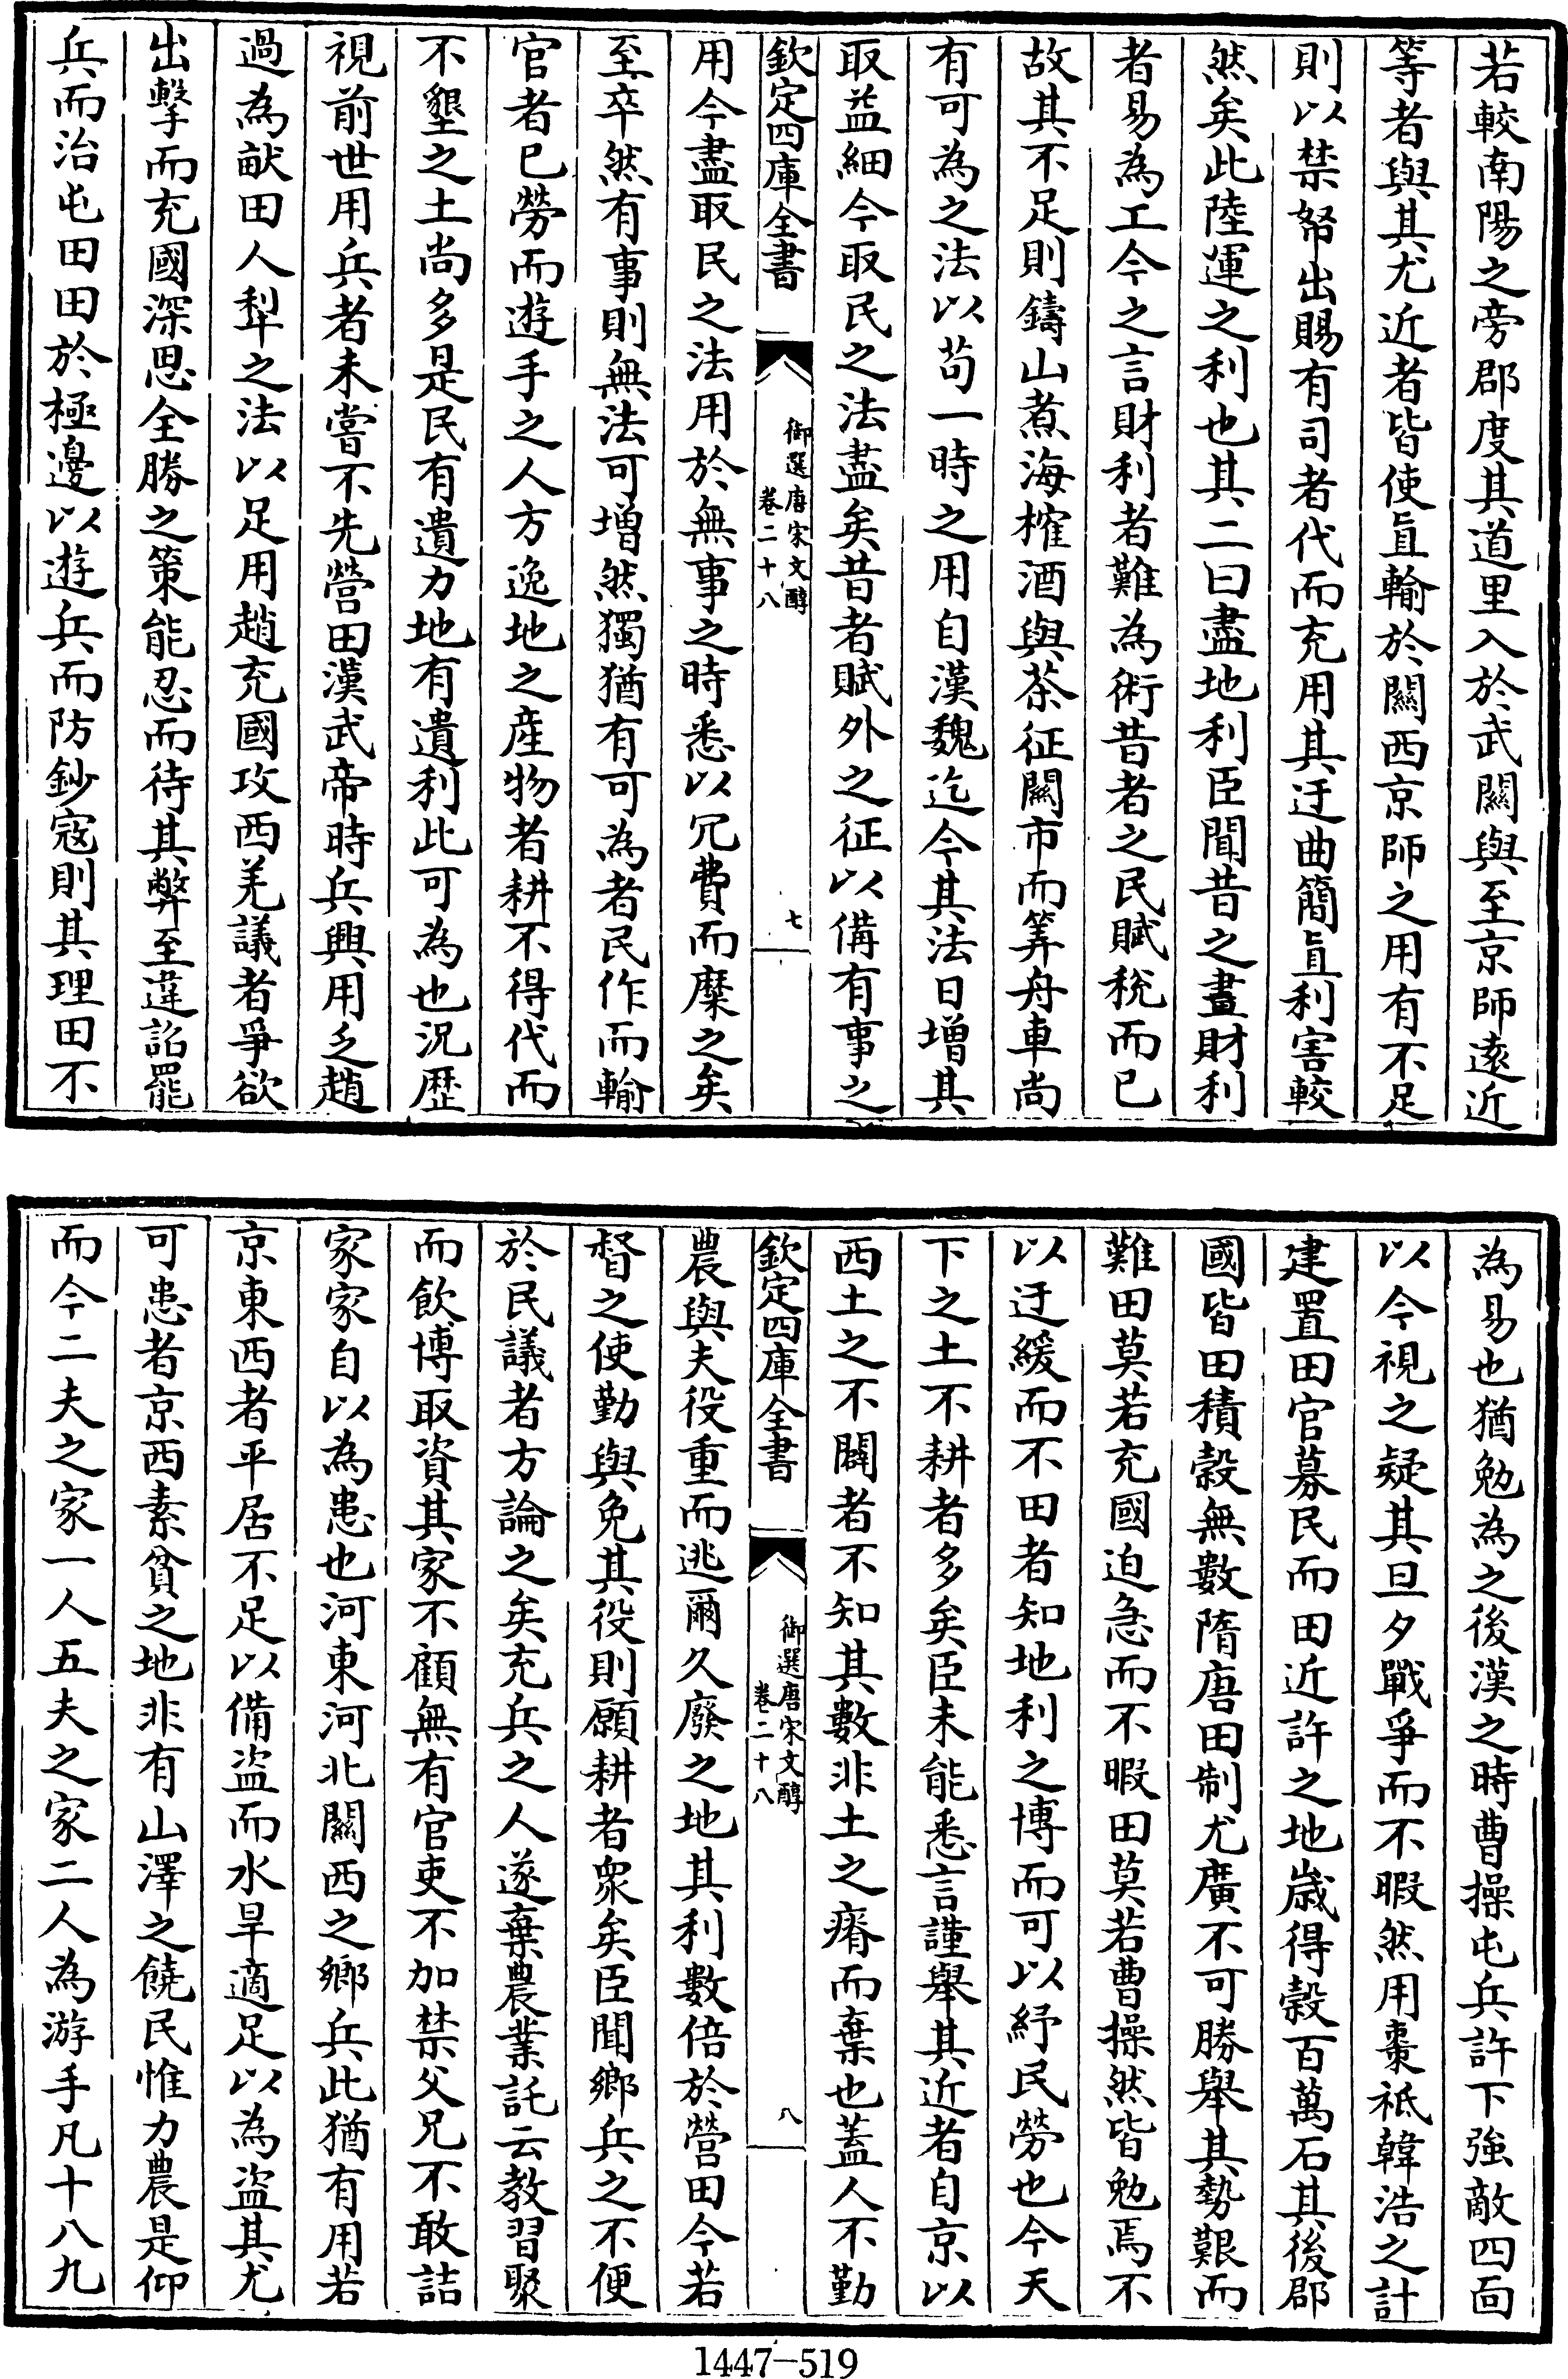 若較南陽之旁郡度其道里入於武關與至京師遠近
等者與其尤近者皆使直輸於關西京師之用有不足
則以禁帑出賜有司者代而充用其迂曲簡直利害較
然矣此陸運之利也其二曰盡地利臣聞昔之畫財利
者易為工今之言財利者難為術昔者之民賦稅而已
故其不足則鑄山煮海榷酒與茶征關市而筭舟車尚
有可為之法以苟一時之用自漢魏迄今其法日增其
取益細今取民之法盡矣昔者賦外之征以備有事之
欽定四庫全書
御選唐宋文醇
卷二十八
七
用今盡取民之法用於無事之時悉以冗費而糜之矣
至卒然有事則無法可增然獨猶有可為者民作而輸
官者已勞而遊手之人方逸地之産物者耕不得代而
不墾之土尚多是民有遺力地有遺利此可為也況歴
視前世用兵者未嘗不先營田漢武帝時兵興用乏趙
過為畎田人犂之法以足用趙充國攻西羌議者爭欲
出擊而充國深思全勝之策能忍而待其弊至違詔罷
兵而治屯田田於極邊以遊兵而防鈔寇則其理田不
為易也猶勉為之後漢之時曹操屯兵許下強敵四面
以今視之疑其旦夕戰爭而不暇然用棗祗韓浩之計
建置田官募民而田近許之地歲得穀百萬石其後郡
國皆田積穀無數隋唐田制尤廣不可勝舉其勢艱而
難田莫若充國迫急而不暇田莫若曹操然皆勉焉不
以迂緩而不田者知地利之博而可以紓民勞也今天
下之土不耕者多矣臣未能悉言謹舉其近者自京以
西土之不闢者不知其數非土之瘠而棄也蓋人不勤
欽定四庫全書
御選唐宋文醇
卷二十八
八
農與夫役重而逃爾久廢之地其利數倍於營田今若
督之使勤與免其役則願耕者衆矣臣聞鄉兵之不便
於民議者方論之矣充兵之人遂棄農業託云教習聚
而飲博取資其家不顧無有官吏不加禁父兄不敢詰
家家自以為患也河東河北關西之鄉兵此猶有用若
京東西者平居不足以備盜而水旱適足以為盜其尤
可患者京西素貧之地非有山澤之饒民惟力農是仰
而今二夫之家一人五夫之家二人為游手凡十八九
1447-519